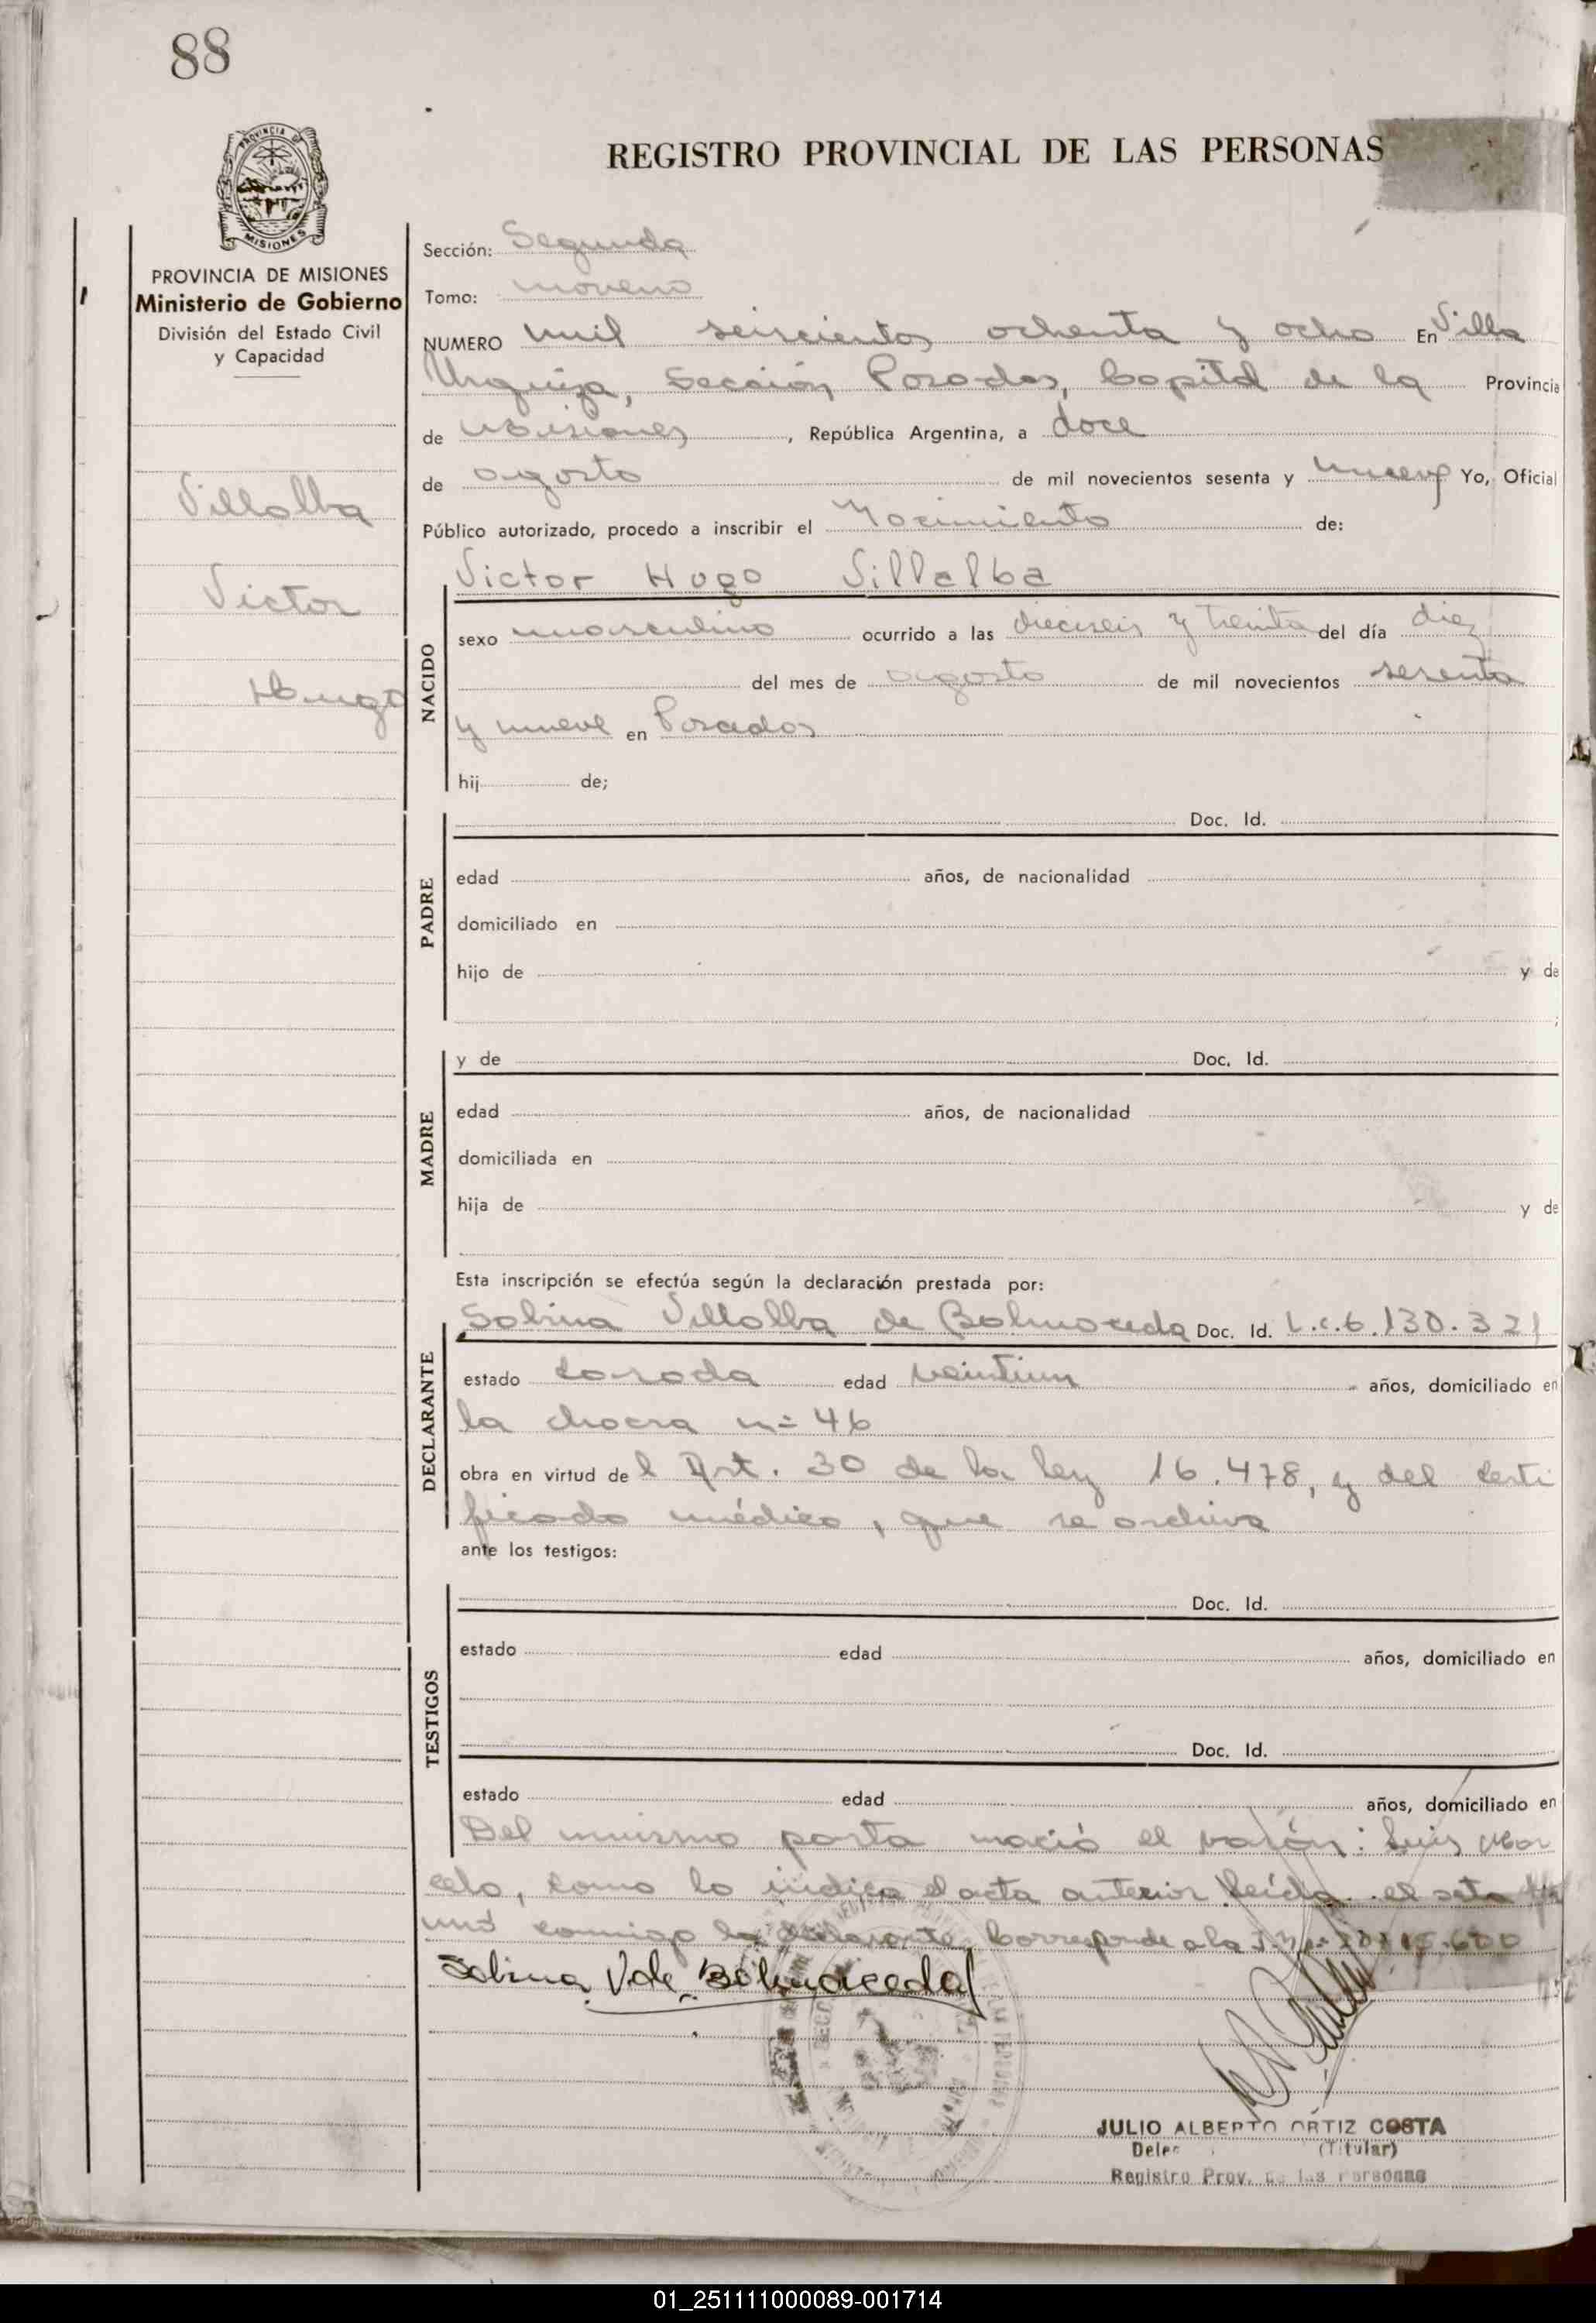 88
PROVINCIA DE
MISIONES
PROVINCIA DE MISIONES
Ministerio de Gobierno
División del Estado Civil
y Capacidad
Villalba
Victor
Hugo
REGISTRO PROVINCIAL DE LAS PERSONAS
Sección: Segunda
Tomo: noveno
NUMERO mil seiscientos ochenta y ocho En Villa
Urquiza, Sección Posadas, Capital de la Provincia
de Misiones, República Argentina, a doce
de agosto de mil novecientos sesenta y nueve Yo, Oficial
Público autorizado, procedo a inscribir el Nacimiento de:
NACIDO
Victor Hugo Villalba
sexo masculino ocurrido a las dieciseis y treinta del día diez
del mes de agosto de mil novecientos sesenta
y nueve en Posadas
hij de;
PADRE
Doc. Id.
edad años, de nacionalidad
domiciliado en
hijo de y de
;
MADRE
y de Doc. Id.
edad años, de nacionalidad
domiciliada en
hija de y de
Esta inscripción se efectúa según la declaración prestada por:
DECLARANTE
Sabina Villalba de Balmaceda Doc. Id. L.c.6.130.321
estado casada edad veintiun años, domiciliado en
la chacra nº 46
obra en virtud del Art. 30 de la ley 16.478, y del certi
ficado médico, que se archiva
ante los testigos:
TESTIGOS
Doc. Id.
estado edad años, domiciliado en
Doc. Id.
estado edad años, domiciliado en
Del mismo parto nació el varón: Luis Mar
celo, como lo indica el acta anterior leída el acta fir
mó conmigo la declarante. Corresponde a la
Sabina V. de Balmaceda
JULIO ALBERTO ORTIZ COSTA
(Titular)
Registro Prov. de las Personas
01_251111000089-001714